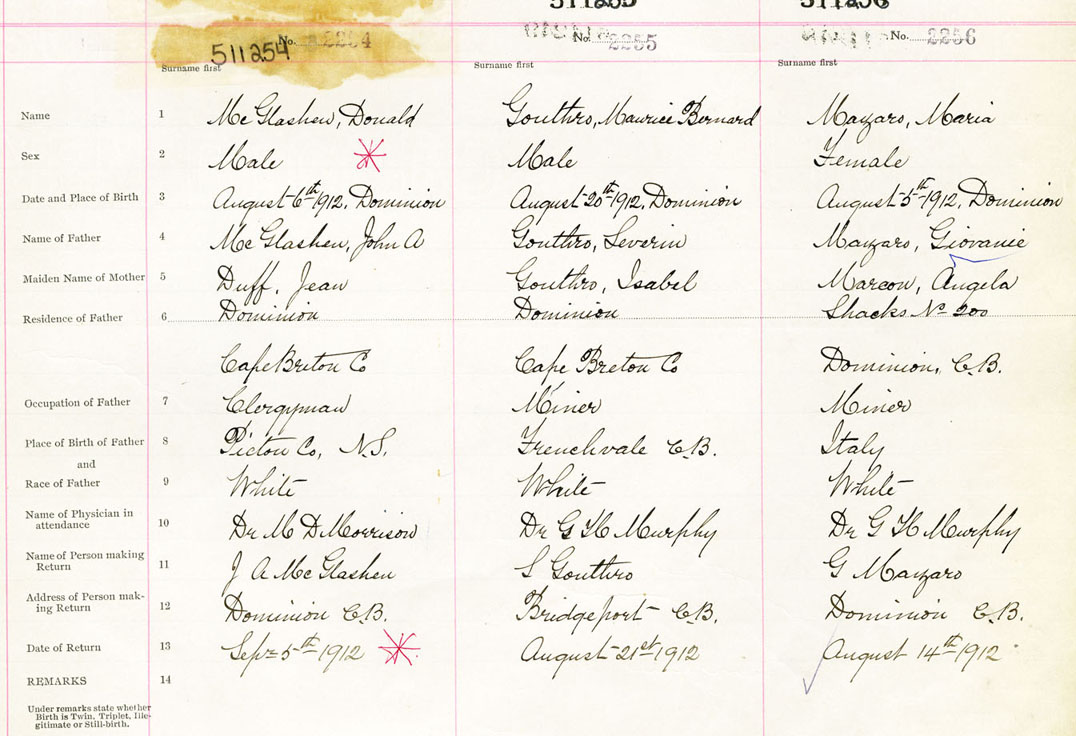 511255 511256
511254 No. 2254 No. 2255 No. 2256
Surname first Surname first Surname first
Name 1 McGlashen, Donald Gouthro, Maurice Bernard Mazzaro, Maria
Sex 2 Male Male Female
Date and Place of Birth 3 August 6th 1912, Dominion August 20th 1912, Dominion August 5th 1912, Dominion
Name of Father 4 McGlashen, John A Gouthro, Severin Mazzaro, Giovanie
Maiden Name of Mother 5 Duff, Jean Gouthro, Isabel Marcon, Angela
Residence of Father 6 Dominion Dominion Shacks No 200
Cape Briton Co Cape Breton Co Dominion, C.B.
Occupation of Father 7 Clergyman Miner Miner
Place of Birth of Father 8 Pictou Co, N.S. Frenchvale C.B. Italy
and
Race of Father 9 White White White
Name of Physician in
attendance 10 Dr M D Morrison Dr G H Murphy Dr G H Murphy
Name of Person making
Return 11 J A McGlashen S Gouthro G Mazzaro
Address of Person mak-
ing Return 12 Dominion C.B. Bridgeport C.B. Dominion C.B.
Date of Return 13 Sept 5th 1912 August 21st 1912 August 14th 1912
REMARKS 14
Under remarks state whether
Birth is Twin, Triplet, Ille-
gitimate or Still-birth.